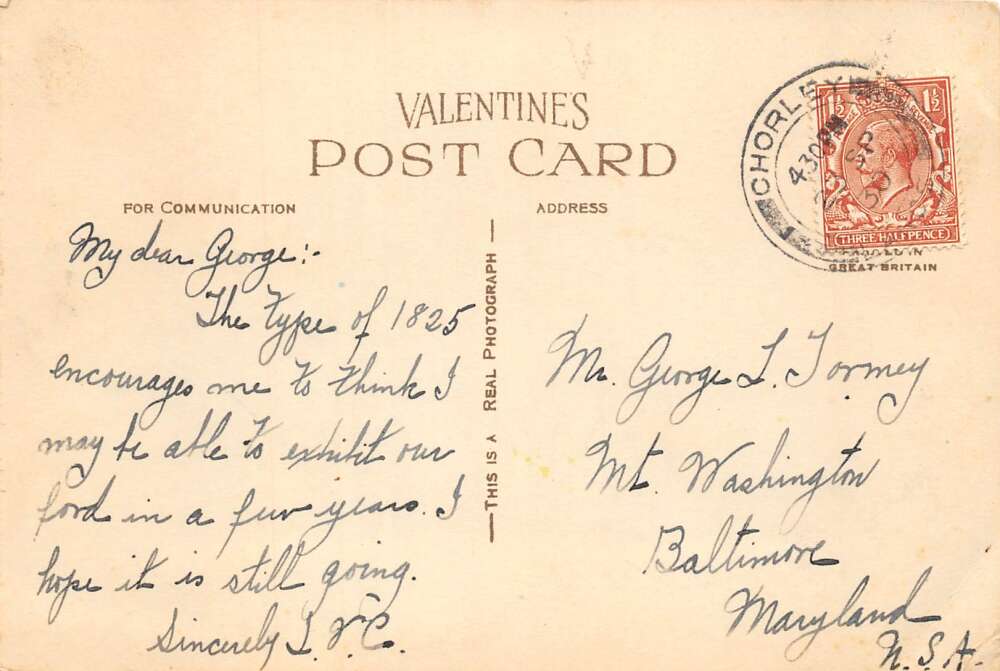 VALENTINE'S
POST CARD
FOR COMMUNICATION
ADDRESS
THIS IS A REAL PHOTOGRAPH
My dear George:-
The type of 1825
encourages me to think I
may be able to exhibit our
ford in a few years. I
hope it is still going.
Sincerely
Mr. George L. Tormey
Mt. Washington
Baltimore
Maryland
U.S.A.
CHORLEY
4 30 PM
SP
1½ 1½
THREE HALFPENCE
GREAT BRITAIN